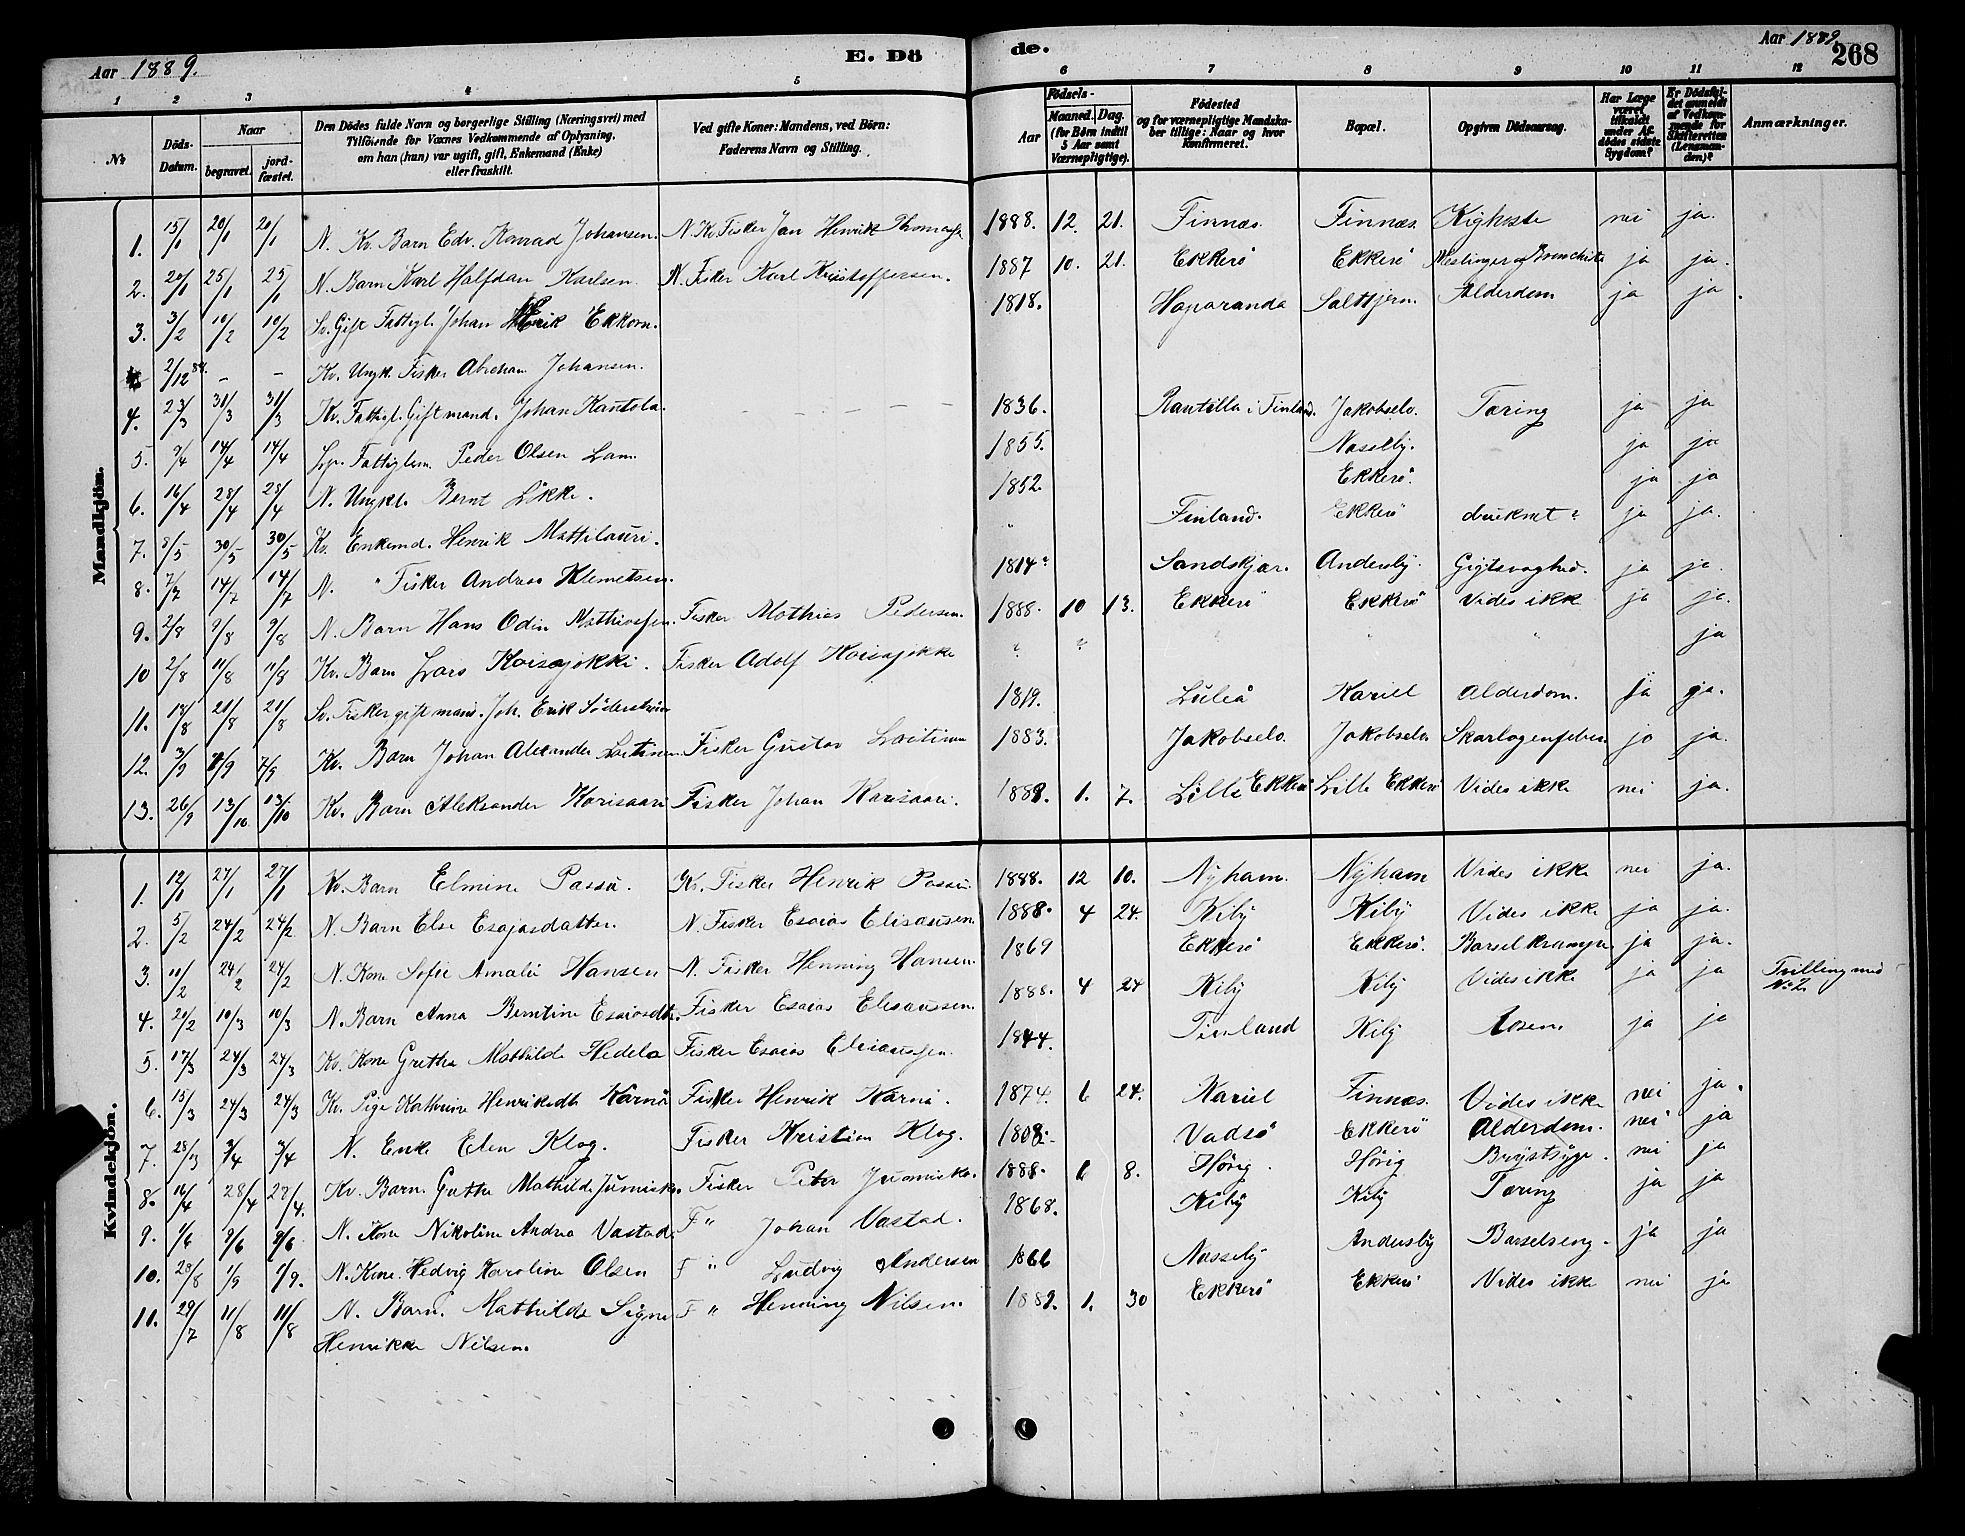 Aar 1889.
E. Dö
de.
Aar 1889.
268
1 2 3 4 5 6 7 8 9 10 11 12
№
Döds-Datum.
Naar
begravet.
jordfæstet.
Den Dödes fulde Navn og borgerlige Stilling (Næringsvei) med
Tilföiende for Voxnes Vedkommende af Oplysning,
om han (hun) var ugift, gift, Enkemand (Enke)
eller fraskilt.
Ved gifte Koner: Mandens, ved Börn:
Faderens Navn og Stilling.
Födsels-
Aar
Maaned. Dag.
(for Börn indtil
5 Aar samt
Værnepligtige).
Födested
og for værnepligtige Mandskaber tillige: Naar og hvor
konfirmeret.
Bopæl.
Opgiven Dödsaarsag.
Har Læge været tilkaldt under Afdödes sidste Sygdom?
Er Dödsfaldet anmeldt af Vedkommende for Skifteretten (Lensmanden)?
Anmærkninger.
Mandkjön.
1. 15/1 20/1 20/1 N. Kv. Barn Edv. Konrad Johansen. N. Kv. Fisker Jan Henrik 1888. 12. 21. Finnæs. Finnæs. Kighoste nei ja.
2. 20/1 25/1 25/1 N. Barn Karl Halfdan Karlsen N. Fisker Karl Kristoffersen. 1887 10. 21. Ekkerö Ekkerö Meslinger og Bronchitis ja ja.
3. 3/2 10/2 10/2 Sv. Gift Fattigl. Johan Erik Ekkorn. 1818. Haparanda Saltfjern Alderdom ja ja.
2/12 88. - - Kv. Ungk. Fisker Abraham Johansen.
4. 23/3 31/3 31/3 Kv. Fattigl. Gift mand. Johan Kantola. 1836. Rantilla i Finland. Jakobselv. Tæring ja ja
5. 9/4 14/4 14/4 Lp. Fattiglem. Peder Olsen Lam. 1855. Næsseby. ja ja
6. 16/4 28/4 28/4 N. Ungkl. Bernt Likke. 1852. Ekkerö. ja ja
7. 8/5 30/5 30/5 Kv. Enkemd. Henrik Mattilauri. " Finland. Ekkerö druknet? ja ja.
8. 7/7 14/7 14/7 N. " Fisker Andreas Klemetsen. 1814? Sandskjær. Andersby. Gigtsvaghed. ja ja.
9. 2/8 9/8 9/8 N. Barn Hans Odin Mathisen. Fisker Mathias Pedersen. 1888. 10 13. Ekkerö Ekkerö Vides ikke ja ja.
10 2/8 11/8 11/8 Kv. Barn Lars Koisajokki. Fisker Adolf Koisajokke ? ? " " " ja
11. 18/8 21/8 21/8 Sv. Fisker gift mand. Joh. Erik Söderström 1819. Luleå Kariel Alderdom. ja ja.
12. 3/9 8/9 7/9 Kv. Barn Johan Alexander Loitinen. Fisker Gustav Loitinen 1883. Jakobselv. Jakobselv Skarlagensfeber ja ja.
13. 26/9 13/10 13/10 Kv. Barn Aleksander Korisaari Fisker Johan Korisaari. 1888. 1. 7. Lille Ekkerö Lille Ekkerö Vides ikke nei ja.
Kvindekjön.
1. 12/1 27/1 27/1 Kv. Barn Elmine Passi. Kv. Fisker Henrik Passi 1888. 12 10. Nyhavn. Nyhavn Vides ikke nei ja.
2. 5/2 24/2 24/2 N. Barn Else Esajasdatter. N. Fisker Esaias Eliseussen. 1888. 4 24. Kiby Kiby Vides ikke ja ja.
3. 10/2 24/2 24/2 N. Kone Sofie Amalie Hansen N. Fisker Henning Hansen. 1869 Ekkerö Ekkerö. Barselkrampe ja ja.
4. 20/2 10/3 10/3 N. Barn Anna Berntine Esaiasdtr. Fisker Esaias Eliseussen. 1888. 4 24 Kiby Kiby Vides ikke ja ja Tvilling med No 2.
5. 17/3 24/3 24/3 Kv. Kone Grethe Mathilde Hedela Fisker Esaias Eliseussen. 1844. Finland Kiby Rosen. ja ja
6. 15/3 24/3 24/3 Kv. Pige Kathrine Henriksdtr Karnö Fisker Henrik Karni. 1874. 6 24. Kariel Finnæs. Vides ikke nei ja.
7. 28/3 3/4 3/4 N. Enke Elen Klog. Fisker Kristian Klog. 1808. Vadsö Ekkerö Alderdom. nei ja
8. 10/4 28/4 28/4. Kv. Barn. Grethe Mathilde Junnisko. Fisker Peter Junnisko. 1888. 6 8. Hörig. Hörig Brystsyge. nei ja
9. 1/6 9/6 9/6 N. Kone Nikoline Andrea Vastad. F " Johan Vastad. 1868. Kiby Kiby Tæring ja ja
10. 28/8 1/9 1/9. N. Kone. Hedvig Karoline Olsen F " Ludvig Andersen 1866 Næsseby Andersby Barselseng. ja ja
11. 29/7 11/8 11/8 N. Barn. Mathilde Signe F " Henning Nilsen. 1889. 1. 30 Ekkerö Ekkerö Vides ikke nei ja
Henrikke Nilsen.